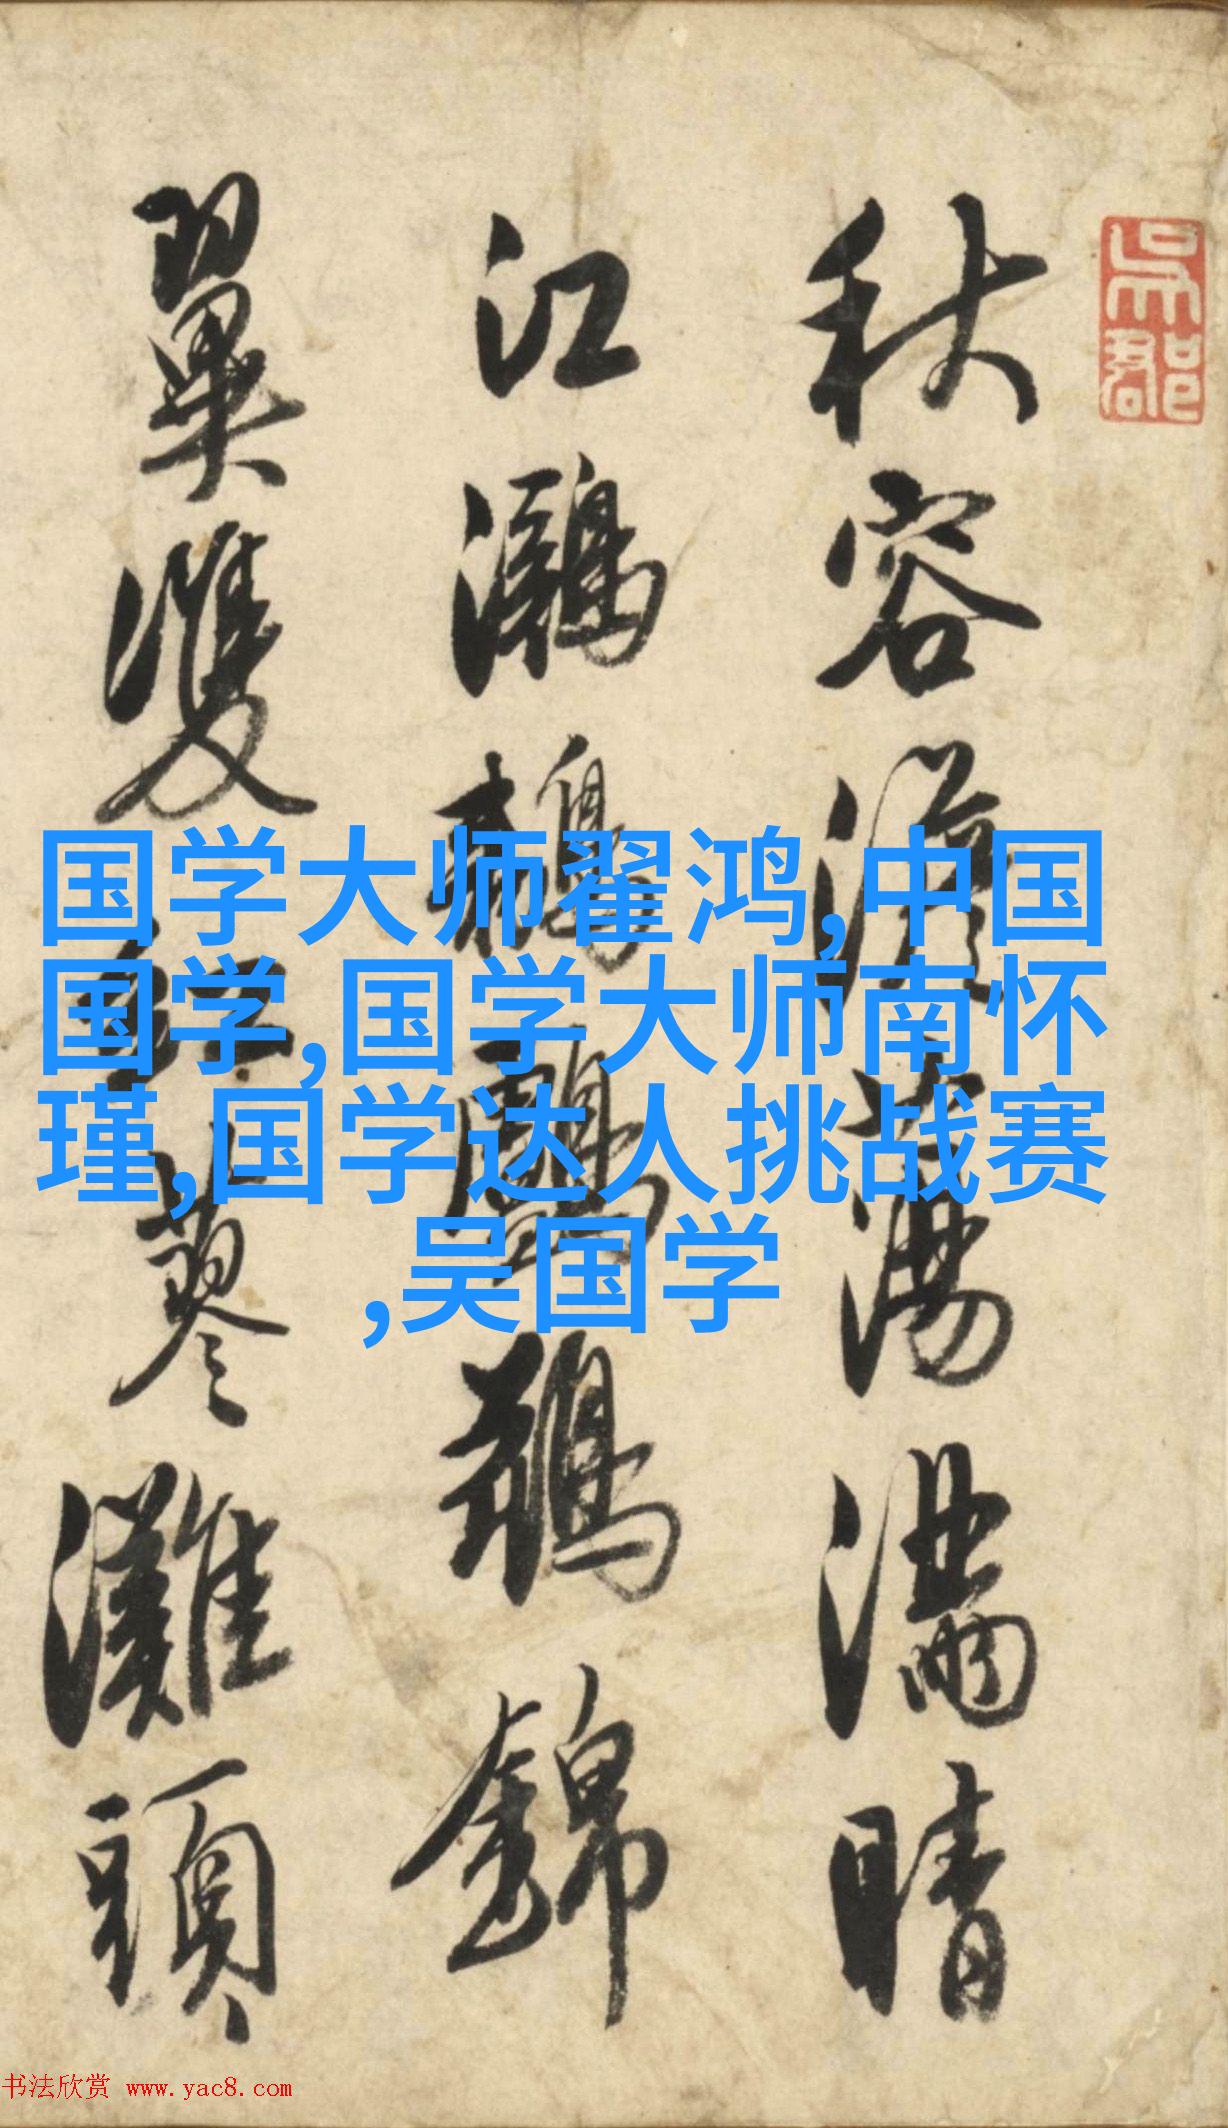 吳郡
秋容蕩滿晴
江鸂鶒鸕鶿錦
翼雙紅蓼灘頭
国学大师翟鸿,中国
国学,国学大师南怀
瑾,国学达人挑战赛
,吴国学
书法欣赏 www.yac8.com